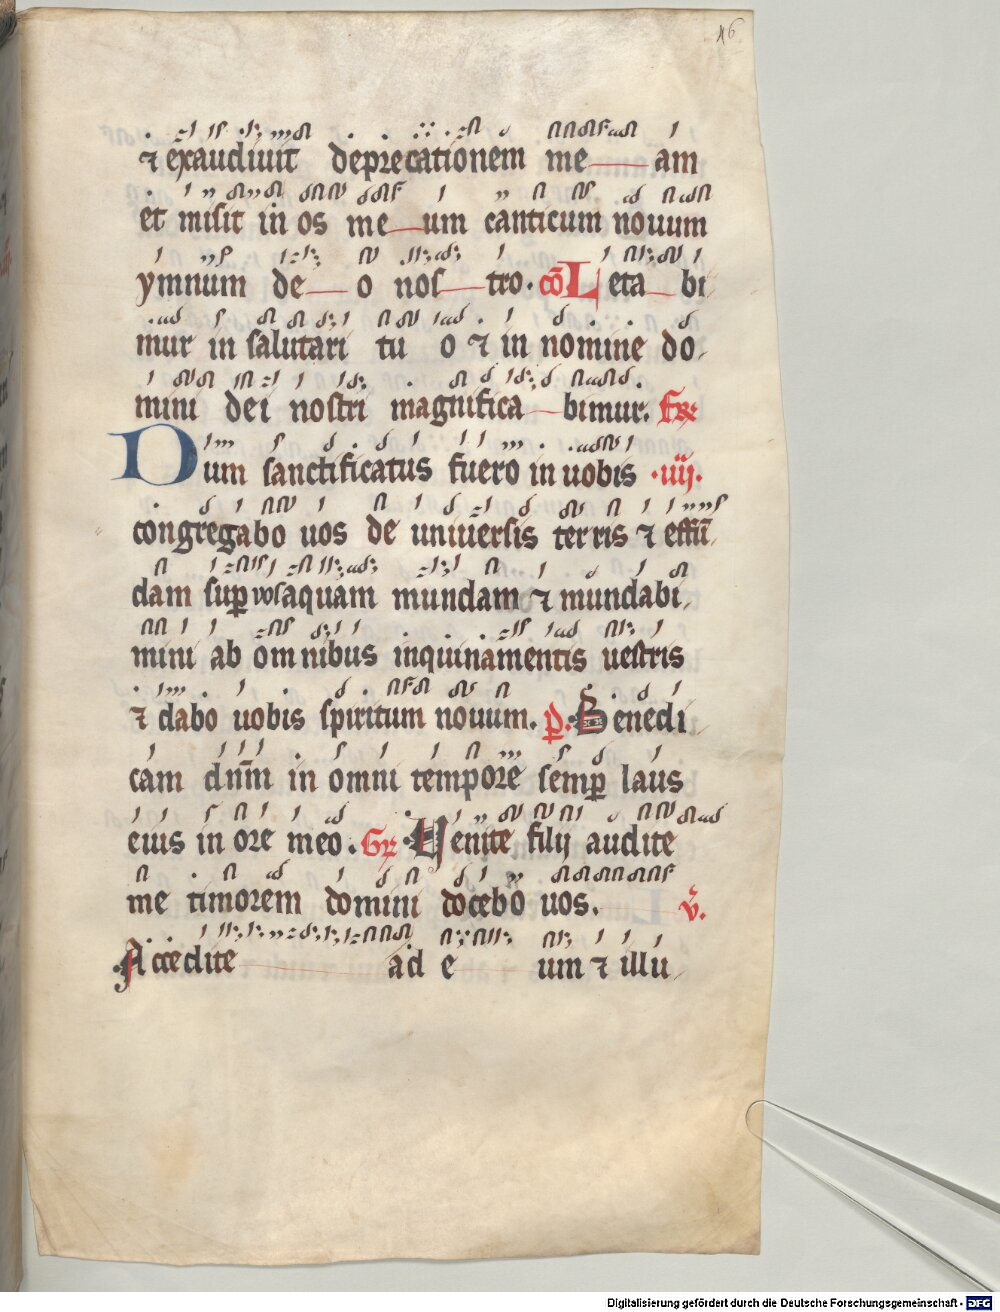 46
⁊ exaudiuit deprecationem me am
et misit in os me um canticum nouum
ymnum de o nos tro. cō Leta bi
mur in salutari tu o ⁊ in nomine do
mini dei nostri magnifica bimur.
Dum sanctificatus fuero in uobis ·iiij·
congregabo uos de uniuersis terris ⁊ effū
dam suꝑ uos aquam mundam ⁊ mundabi
mini ab omnibus inquinamentis uestris
⁊ dabo uobis spiritum nouum. p̄. Benedi
cam dnm̄ in omni tempore semꝑ laus
eius in ore meo. Gr̄ Venite filij audite
me timorem domini docebo uos. v̄.
Accedite ad e um ⁊ illu
Digitalisierung gefördert durch die Deutsche Forschungsgemeinschaft - DFG